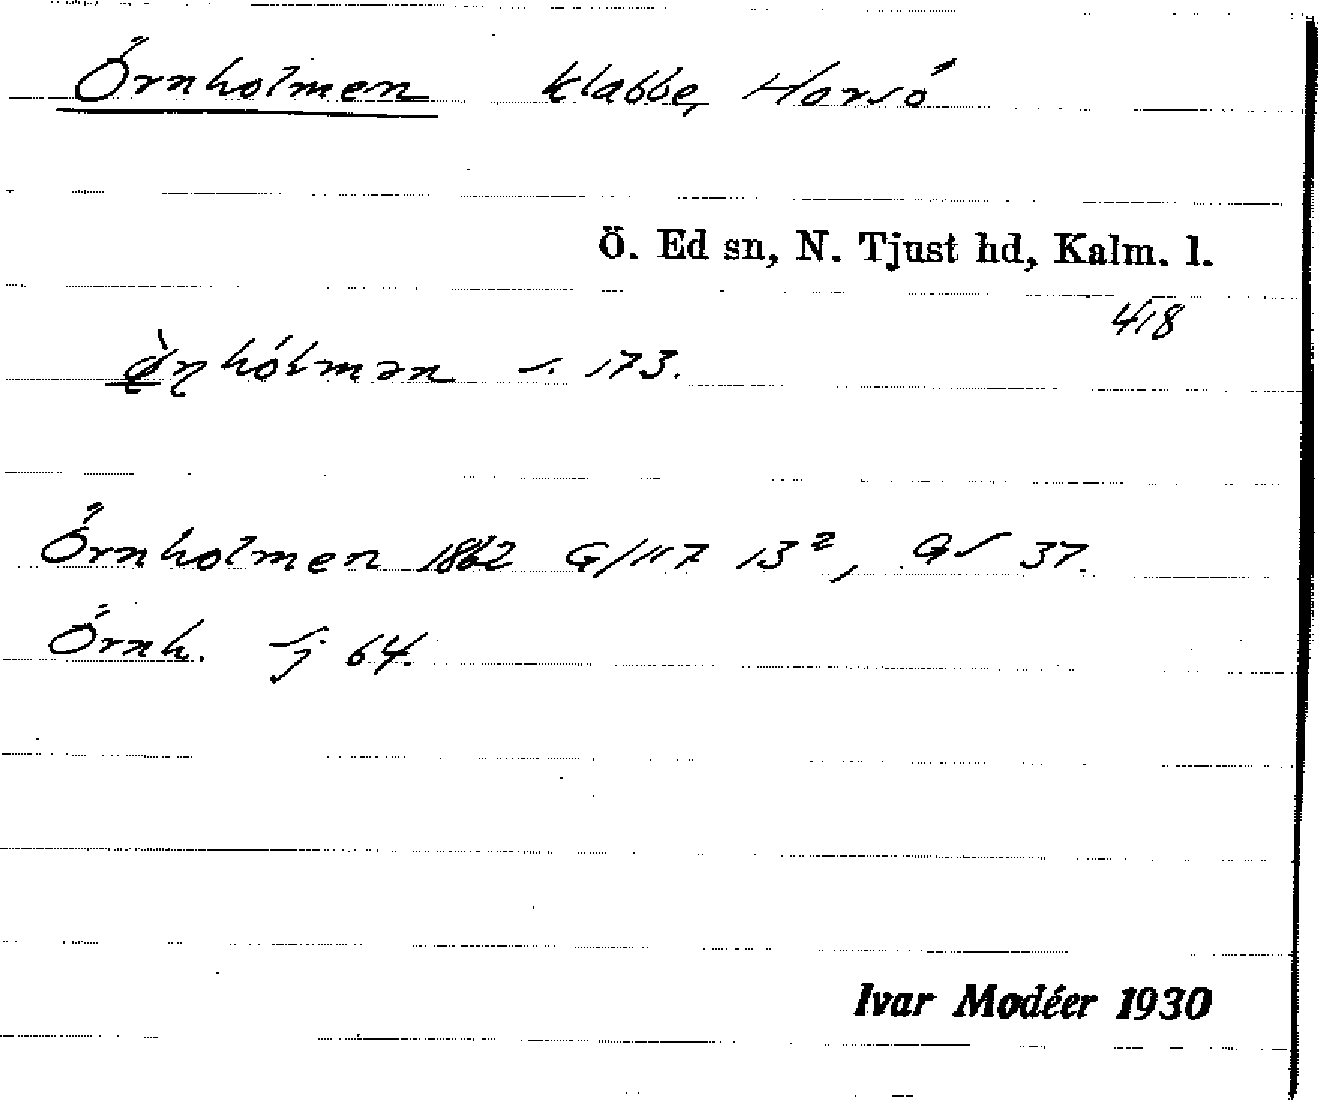 Örnholmen klabbe, Horsö
Ö. Ed sn, N. Tjust hd, Kalm. l.
418
s. 173.
Örnholmen 1862 G/117 13², GS 37.
Örnh. Sj 64.
Ivar Modéer 1930